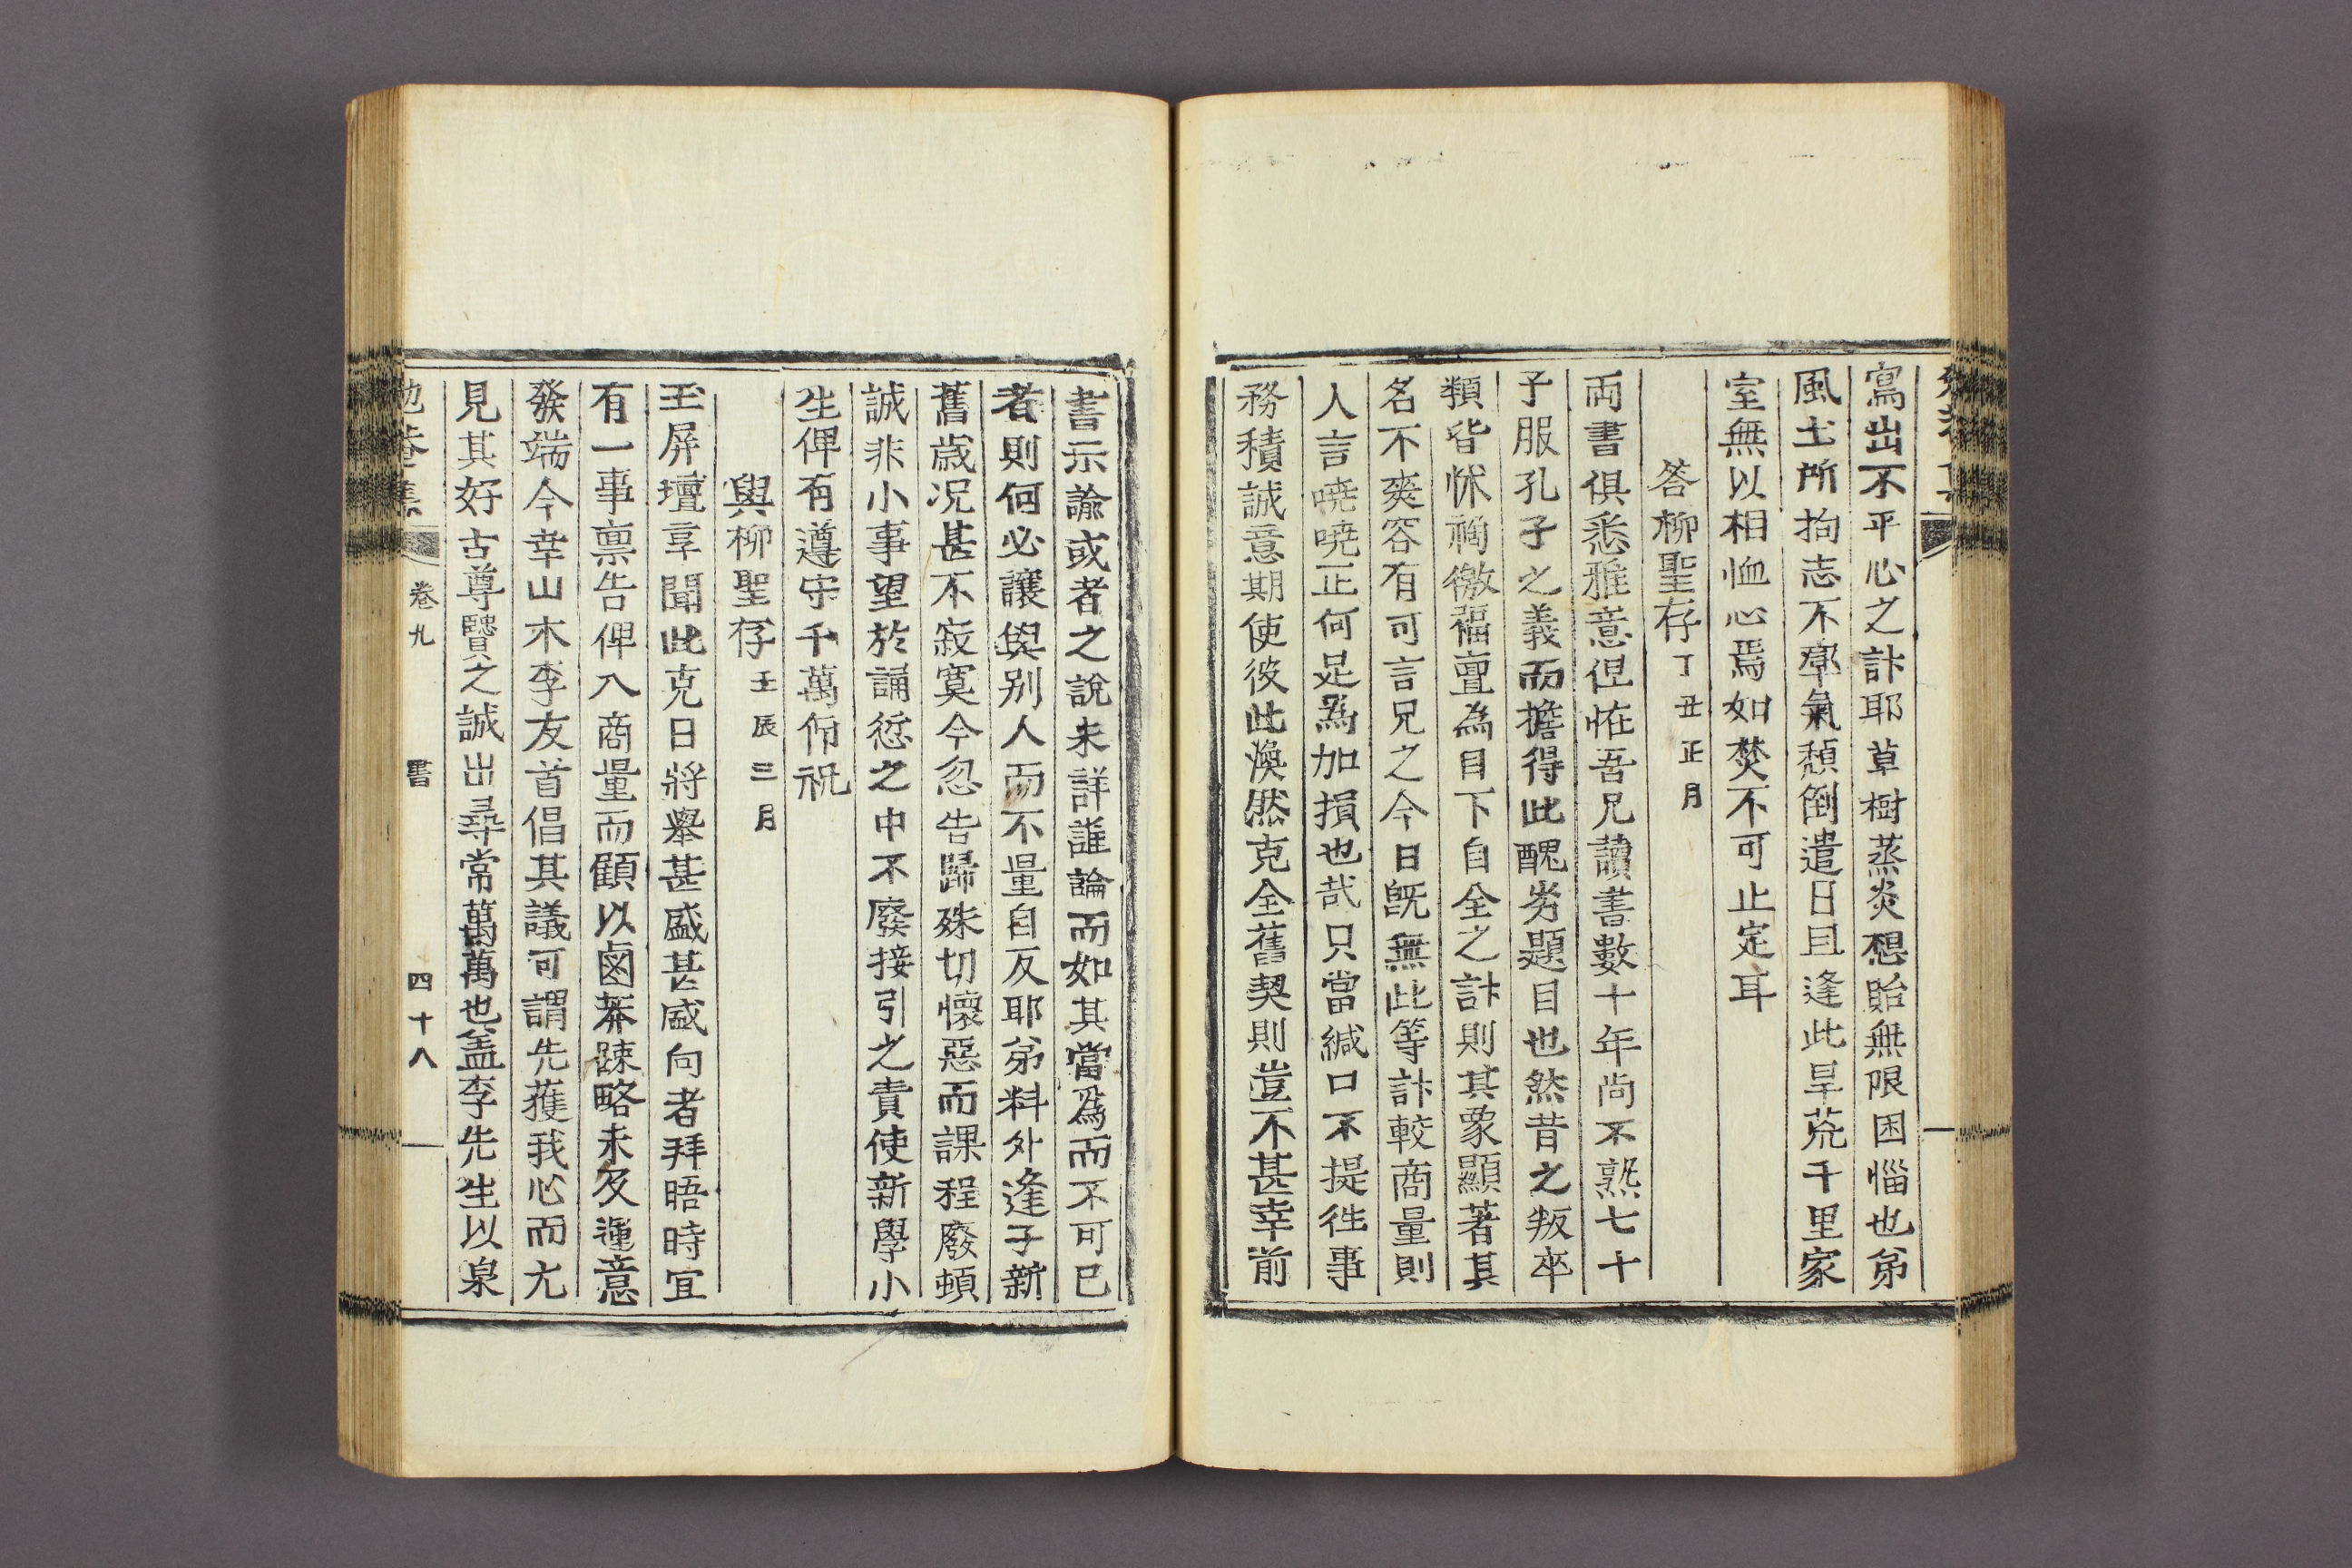 寫出不平心之計耶草樹蒸炎想貽無限困惱也弟
風土所拘志不率氣頹倒遣日且逢此旱荒千里家
室無以相恤心焉如焚不可止定耳
答柳聖存丁丑正月
両書俱悉雅意但恠吾兄讀書數十年尚不熟七十
子服孔子之義而擔得此醜劣題目也然昔之叛卒
類皆怵禍徼福亶為目下自全之計則其象顯著其
名不爽容有可言兄之今日旣無此等計較商量則
人言嘵嘵正何足為加損也哉只當緘口不提徃事
務積誠意期使彼此渙然克全舊契則豈不甚幸前
書示諭或者之說未詳誰論而如其當爲而不可已
者則何必讓與别人而不量自反耶弟料外逢子新
舊歳况甚不寂寞今忽告歸殊切懷惡而課程廢頓
誠非小事望於誦㤠之中不廢接引之責使新學小
生俾有遵守千萬仰祝
與柳聖存壬辰三月
玉屏壇享聞此克日將擧甚盛甚盛向者拜晤時宜
有一事禀告俾入商量而顧以鹵莽踈略未及運意
發端今幸山木李友首倡其議可謂先獲我心而尤
見其好古尊賢之誠出尋常萬萬也盖李先生以泉
卷九
書
四十八